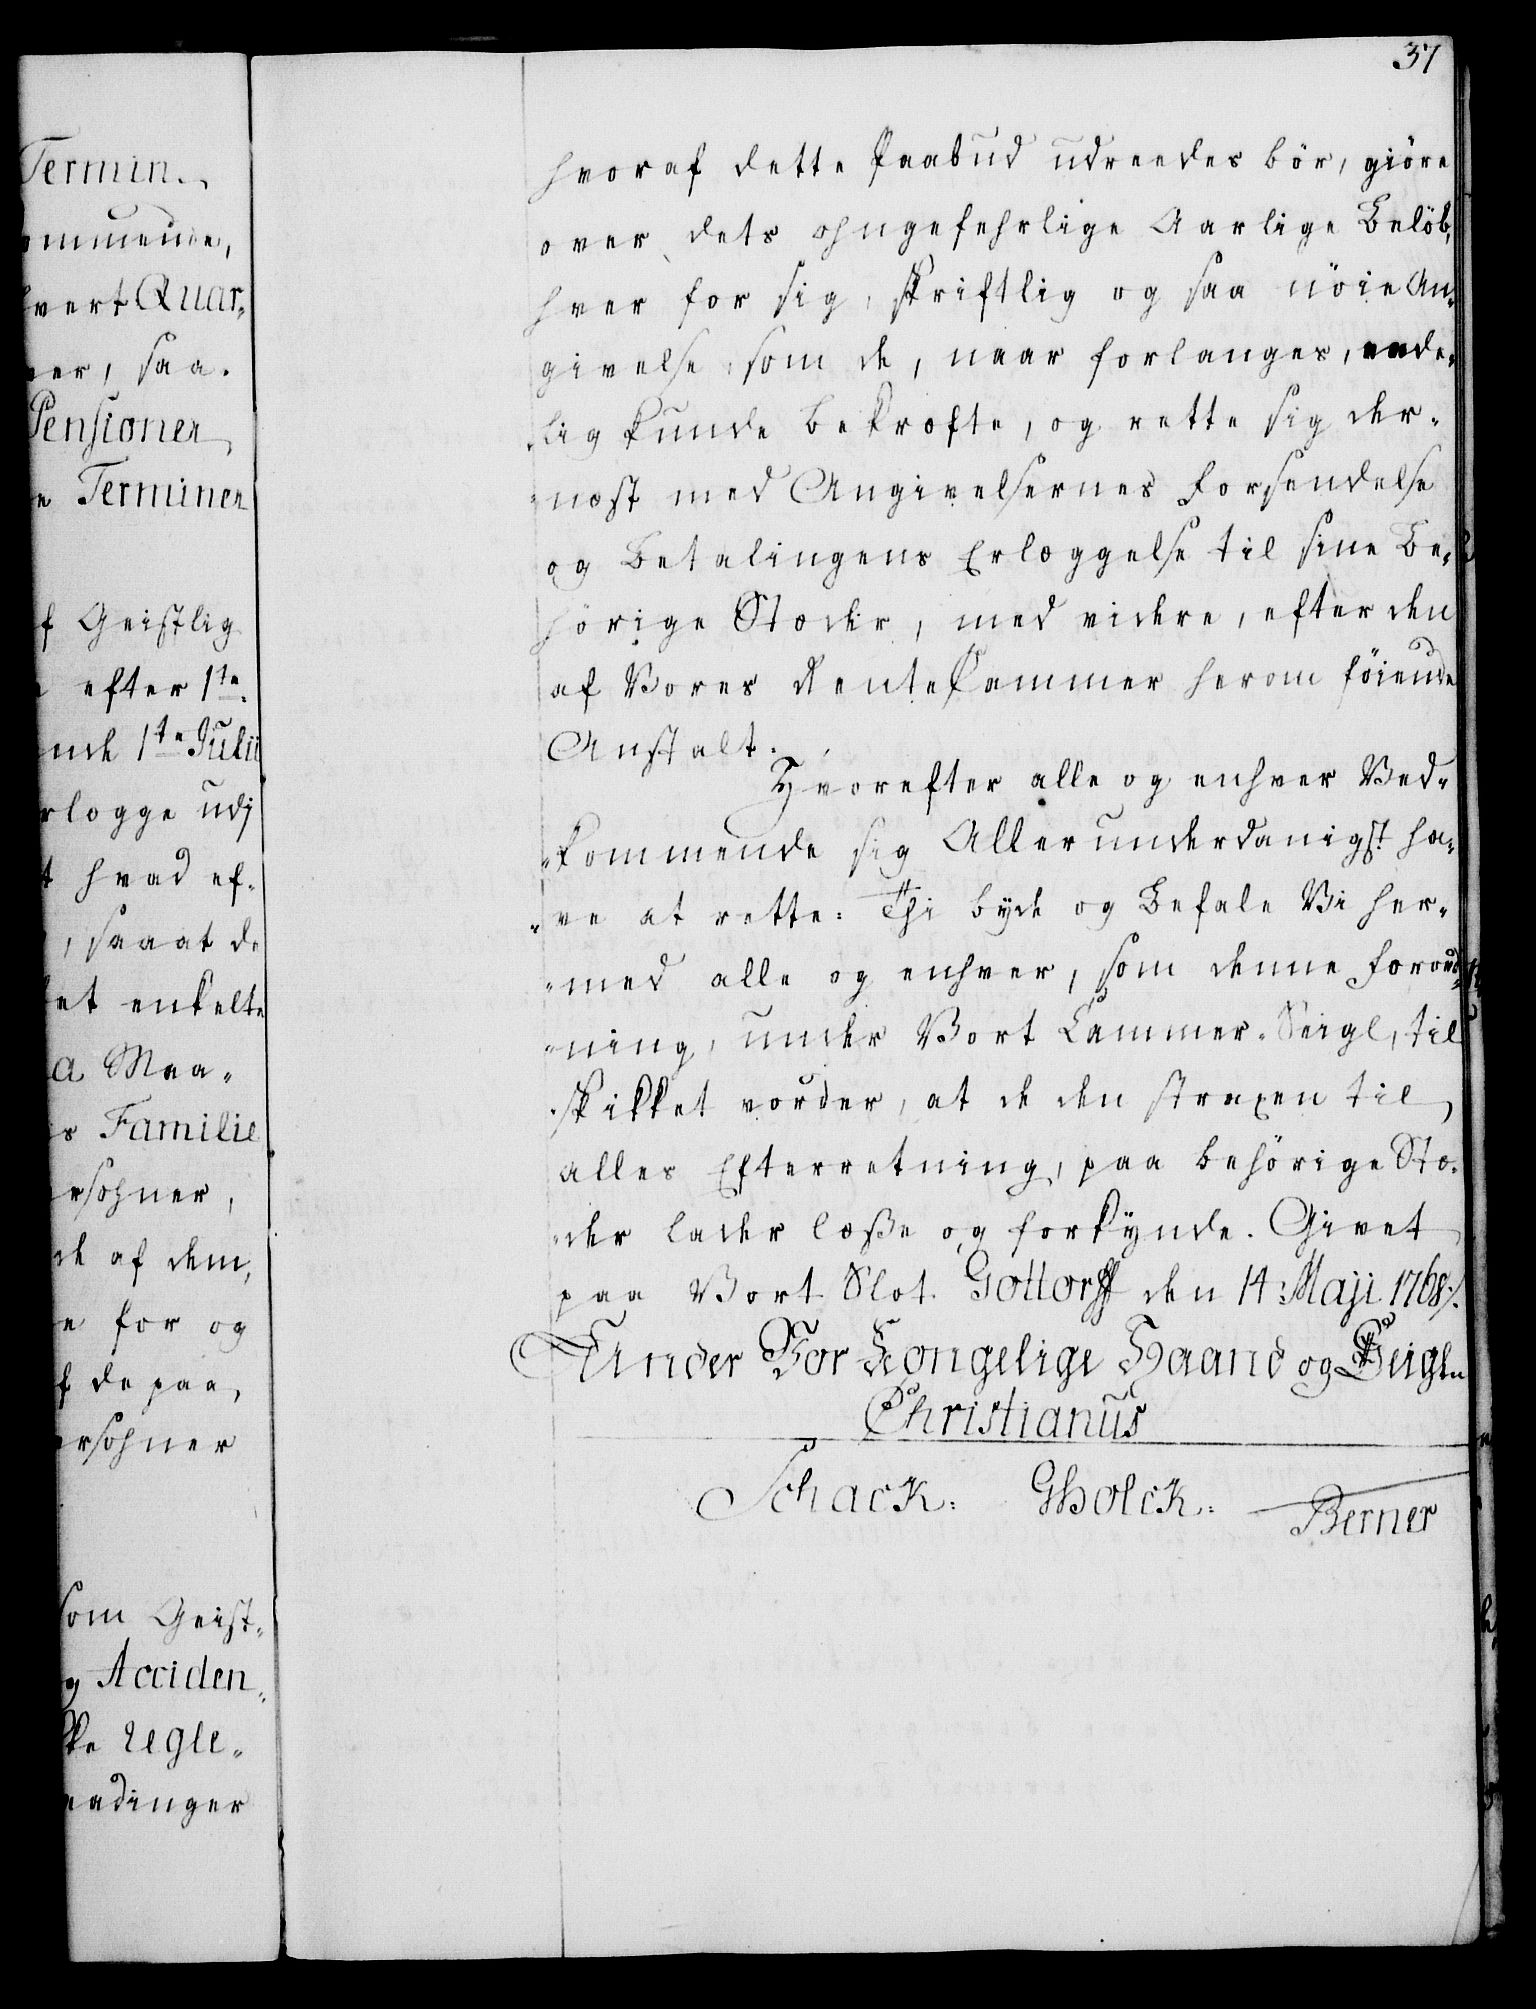 37
Termin.
ommende,
hvert Quar-
ner, saa-
Pensioner
e Terminer
f Geistlig
efter 1te
nde 1te Julii
rlægge udj
t hvad ef-
, saaat de
et enkelte
a Maa-
s Familie
ersohner,
de af dem,
e for og
f de paa,
ersohner
som Geist-
g Acciden-
ke regle-
aadinger
hvoraf dette Paabud udreedes bör, giöre
over dets ohngefehrlige Aarlige Belöb,
hver for sig, skriftlig og saa nöie An-
givelse, som de, naar forlanges, eede-
lig kunde bekræfte, og rette sig der-
næst med Angivelsernes Forsendelse
og Betalingens Erlæggelse til sine Be-
hörige Stæder, med videre, efter den
af Vores RenteKammer herom föiende
Anstalt.
Hvorefter alle og enhver Ved-
kommende sig Allerunderdanigst ha-
ve at rette. Thi byde og Befale Vi her-
med alle og enhver, som denne Forord-
ning, under Vort Cammer-Seigl, til
skikket vorder, at de den straxen til
alles Efterretning, paa behörige Stæ-
der lader læße og forkynde. Givet
paa Vort Slot Gottorff den 14 Maji 1768.
Under Vor Kongelige Haand og Seigl
Christianus
Schack. GHolck. Berner